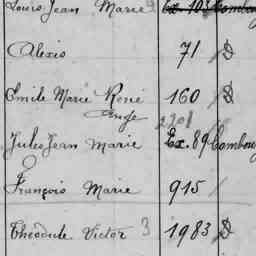 Louis Jean Marie
Alexis 71 D
Emile Marie René 160 D
Ange 2201
Jules Jean Marie Ex. 89 Combourg
François Marie 915
Théodule Victor 3 1983 D